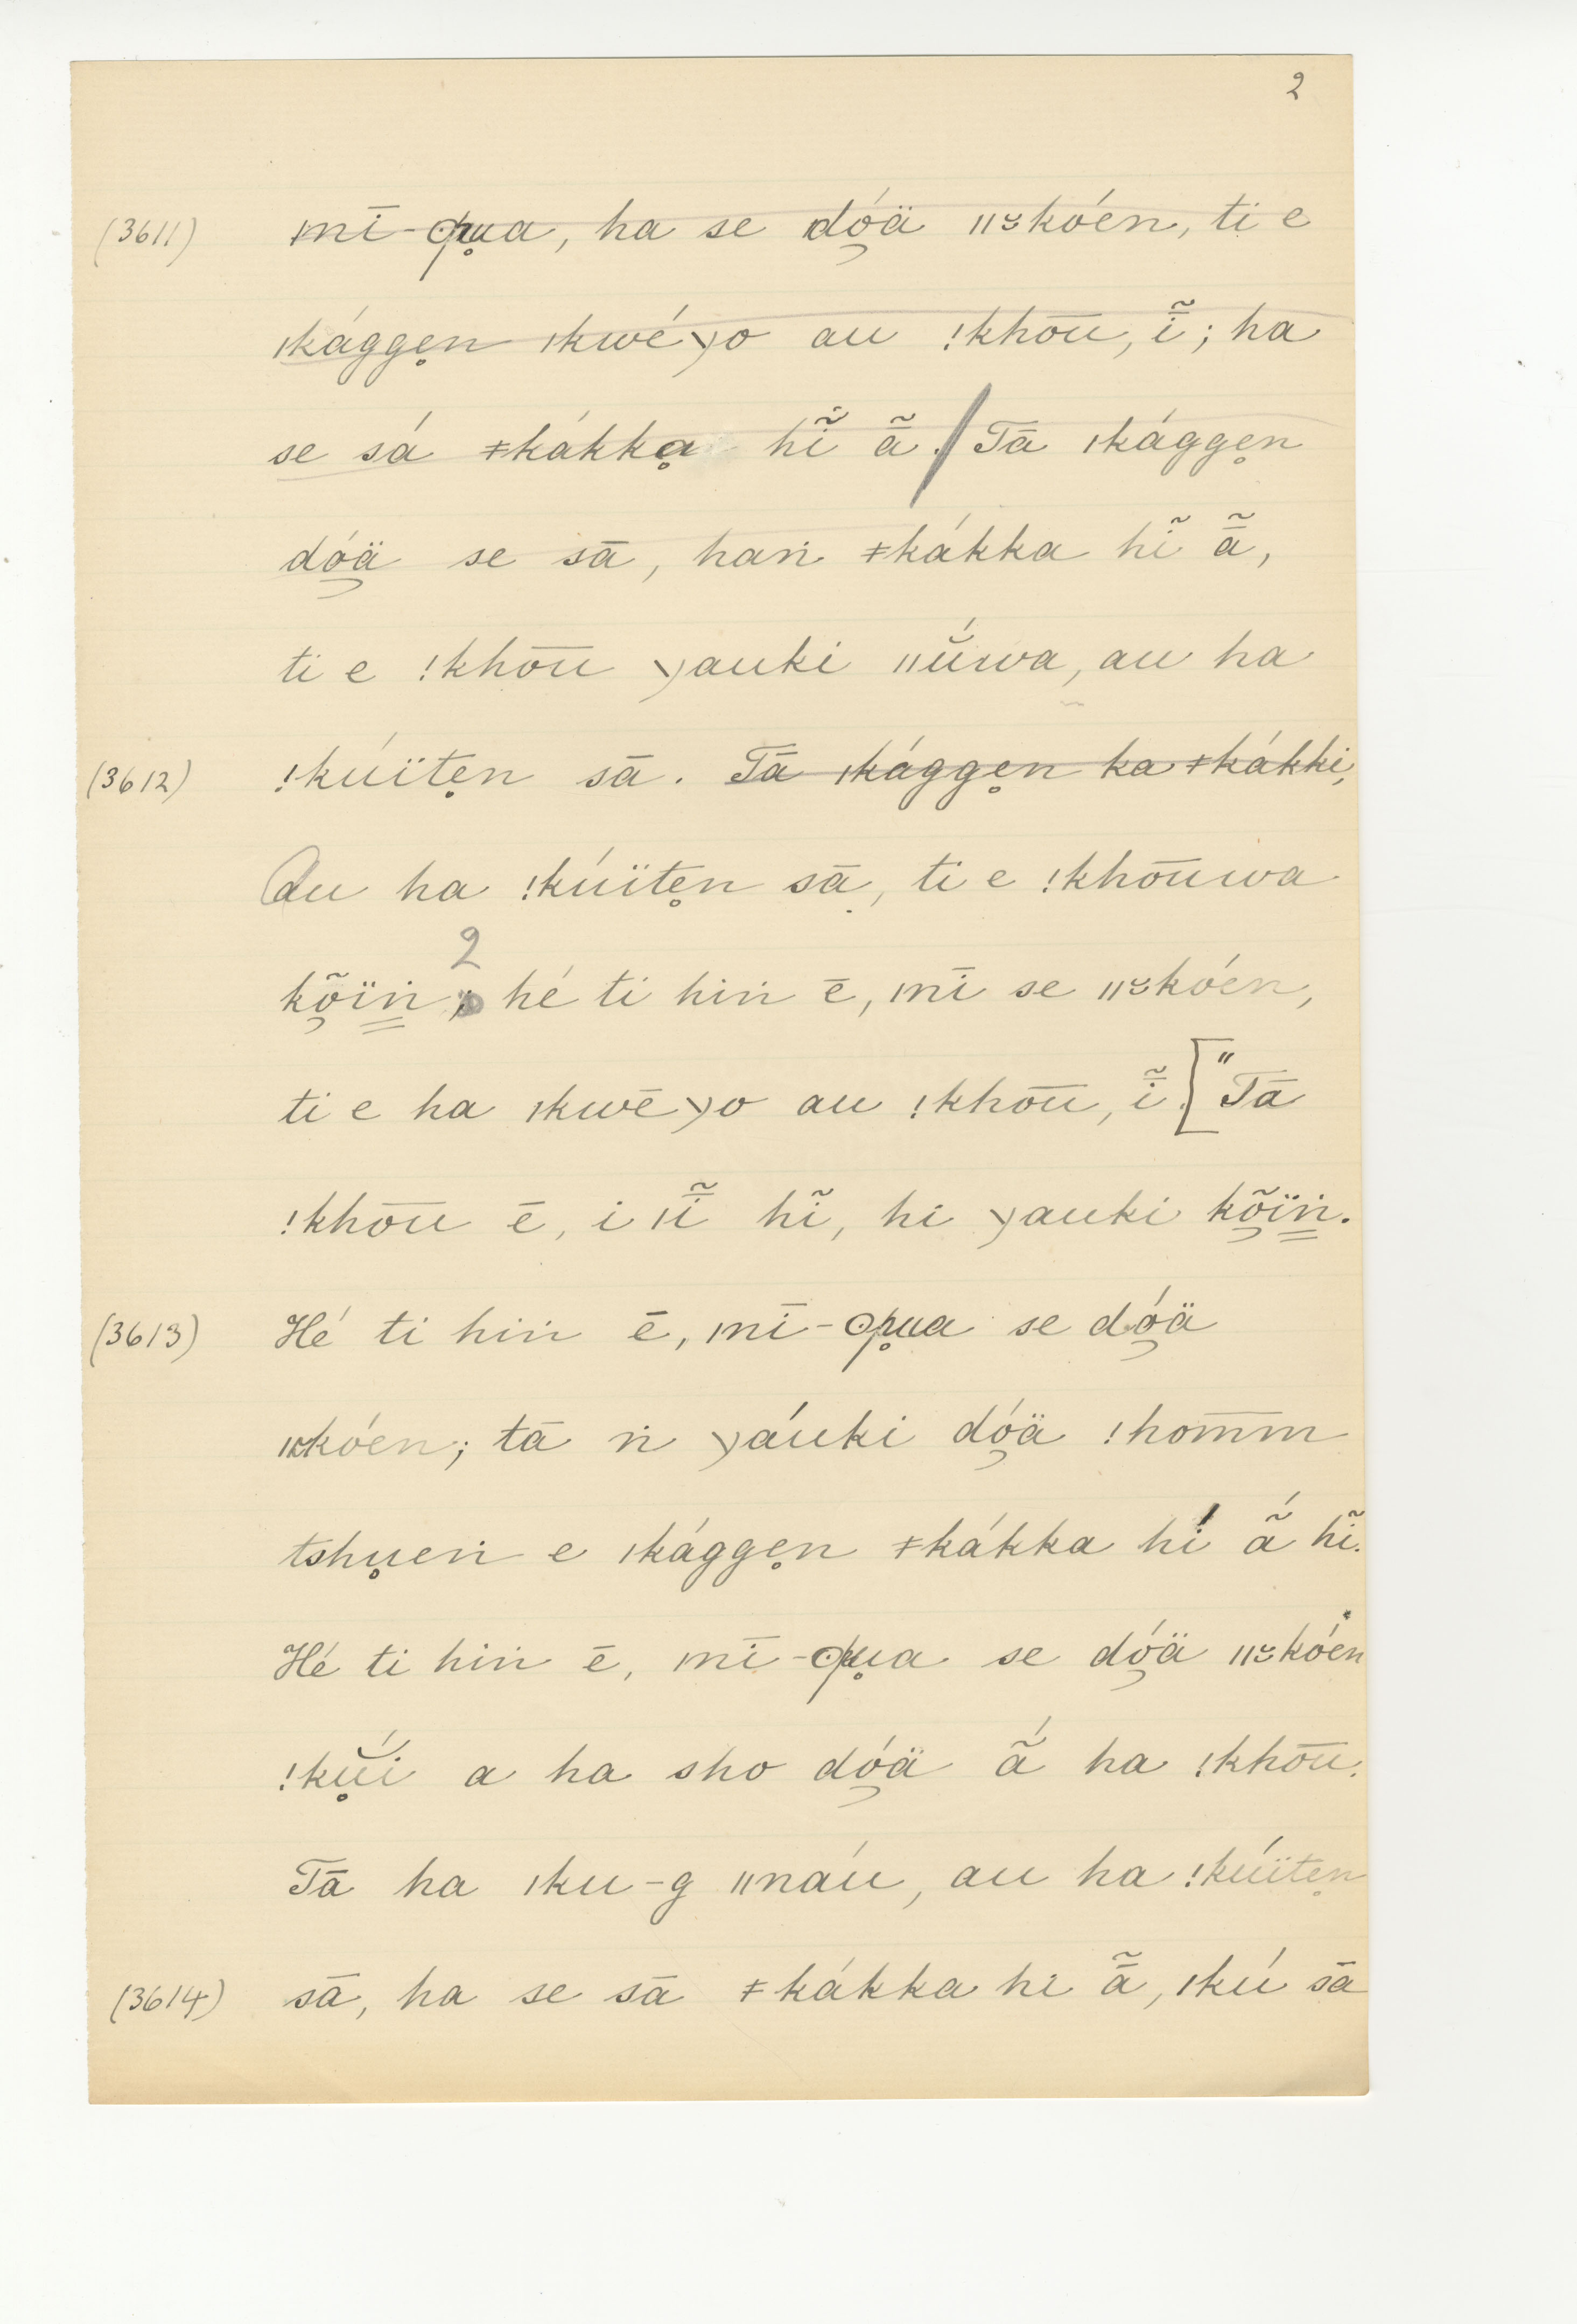 2
(3611) ǀnī-ʘpu̥a, ha se dó̰ä ǁ꞉kóen, ti e
ǀkágge̥n ǀkwé𝼊o au ǃkhō͞u, ĩ̄; ha
se sá ǂkákkḁ hĩ̆ ã̄. / Tā ǀkágge̥n
dó̰ä se sā, haṅ ǂkákka hĩ ã̄,
ti e ǃkhō͞u 𝼊auki ǁŭ́wa, au ha
(3612) ǃkúïte̥n sā. Tā ǀkágge̥n ka ǂkákki,
Au ha ǃkúïte̥n sā, ti e ǃkhō͞uwa
kõ̰ïṅ̳ 2 ; hé ti hiṅ ē, ǀnī se ǁ꞉kóen,
ti e ha ǀkwē𝼊o au ǃkhō͞u, ĩ̄. [ "Tā
ǃkhō͞u ē, i ǀĩ̄ hĩ, hi 𝼊auki kõ̰ïṅ̳.
(3613) Hé ti hiṅ ē, ǀnī-ʘpu̥a se dó̰ä
ǁ꞉kóen; tā ṅ 𝼊áuki dó̰ä ǃhom̄m̄
tshu̥eṅ e ǀkágge̥n ǂkákka hi ã́ hĩ.
Hé ti hiṅ ē, ǀnī-ʘpu̥a se dó̰ä ǁ꞉kóen
ǃkŭ̥́i a ha sho dó̰ä ã́ ha ǃkhō͞u.
Tā ha ǀku-g ǁnáu, au ha ǃkúïte̥n
(3614) sā, ha se sā ǂkákka hi ã̄, ǀkú sā